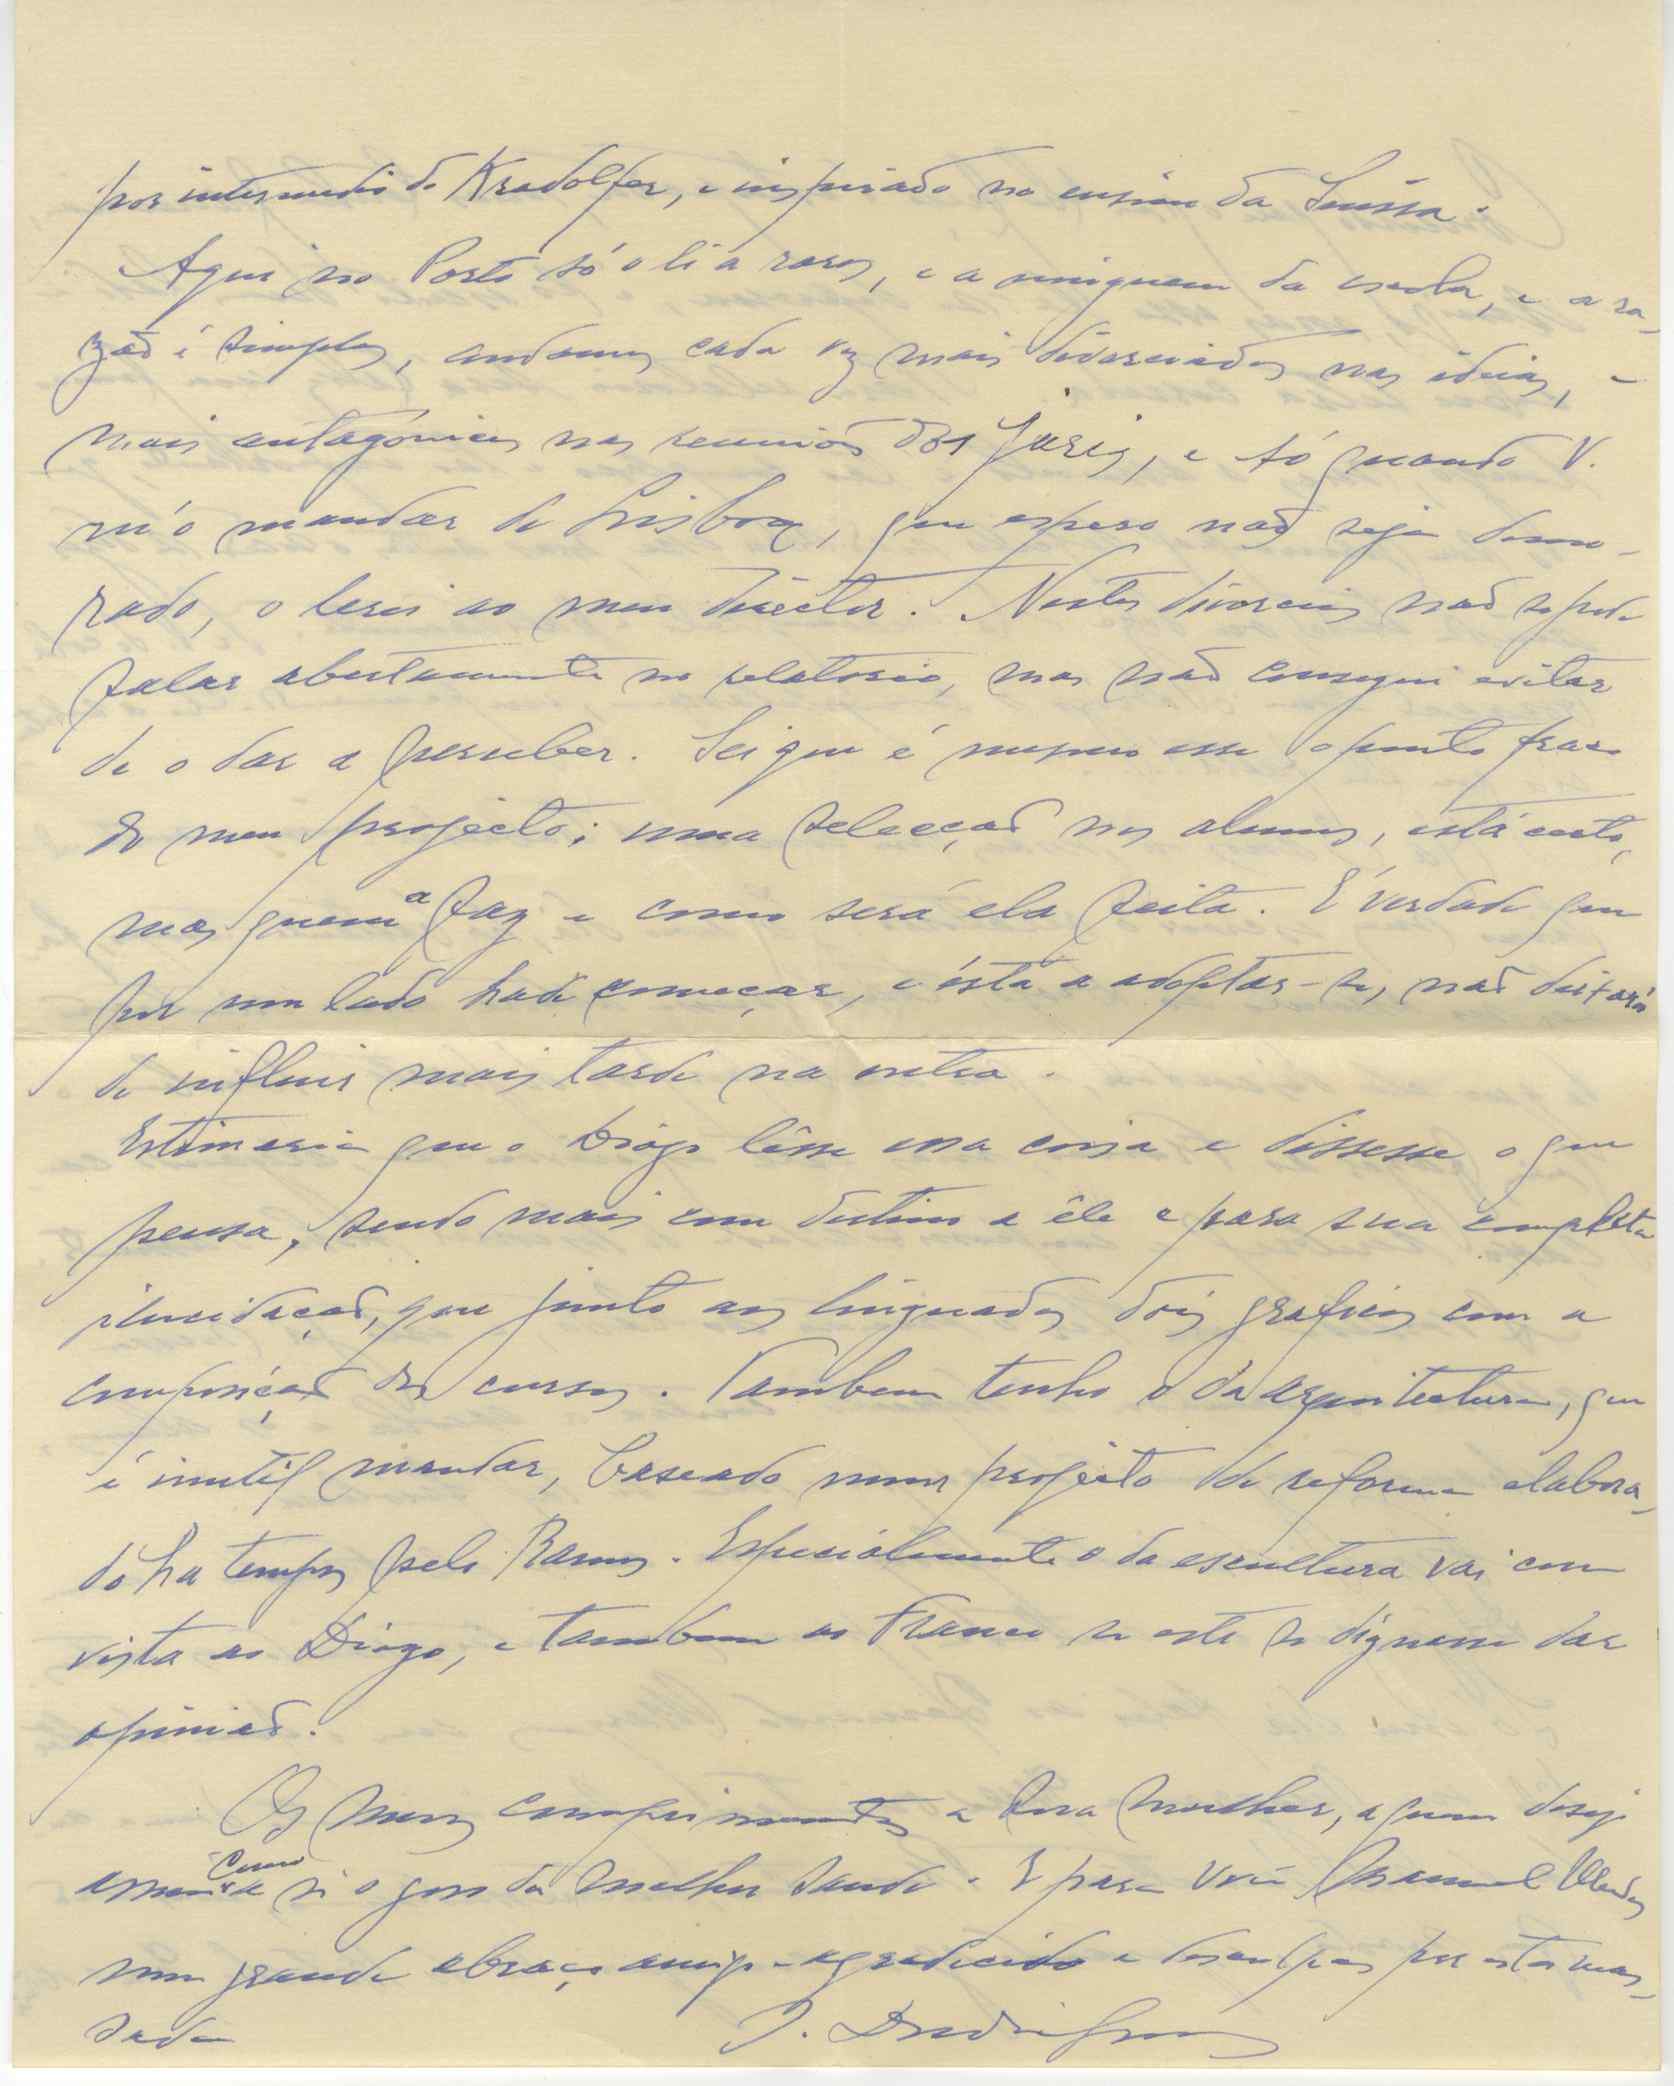 por intermedio do Kradolfer, e inspirado no ensino da Suissa.
Aqui no Porto só o li a raros, e a ninguem da escola, e a ra-
zão é simples, andamos cada vez mais divorciados nas ideias, e
mais antagónicos nas reuniões dos júris, e só quando V.
m'o mandar de Lisboa, que espero não seja demo-
rado, o lerei ao meu diréctor. Nestes divorcios não se pode
falar abertamente no relatorio, mas não consegui evitar
de o dar a perceber. Sei que é mesmo esse o ponto fraco
do meu projécto; uma selecção nos alunos, está certo,
mas quem a faz e como será ela feita. É verdade que
por um lado hade começar, e ésta a adoptar-se, não deixará
de influir mais tarde na outra.
Estimaria que o Diogo lêsse essa coisa e dissesse o que
pensa, sendo mais com destino a êle e para sua completa
ilucidação, que junto aos linguados dois graficos com a
composição dos cursos. Tambem tenho o da arquitectura, que
é inutil mandar, baseado num projécto de reforma elabora-
do ha tempos pelo Ramos. Especialmente o da escultura vai com
vista ao Diogo, e tambem ao Franco se este se dignasse dar
opinião.
Os meus cumprimentos a sua mulher, a quem desejo
como si o goso da melhor saude. E para você Manuel Mendes
um grande abraço amigo e agradecido e desculpas por esta mas-
sada